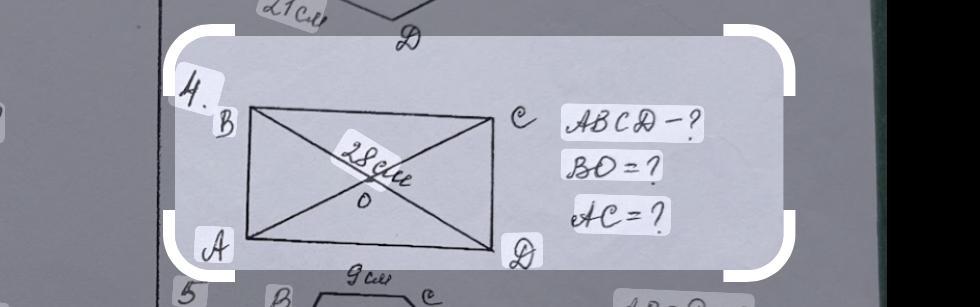 21см
D
4.
B
C
ABCD - ?
28см
BO = ?
O
AC = ?
A
D
9см
5
B
C